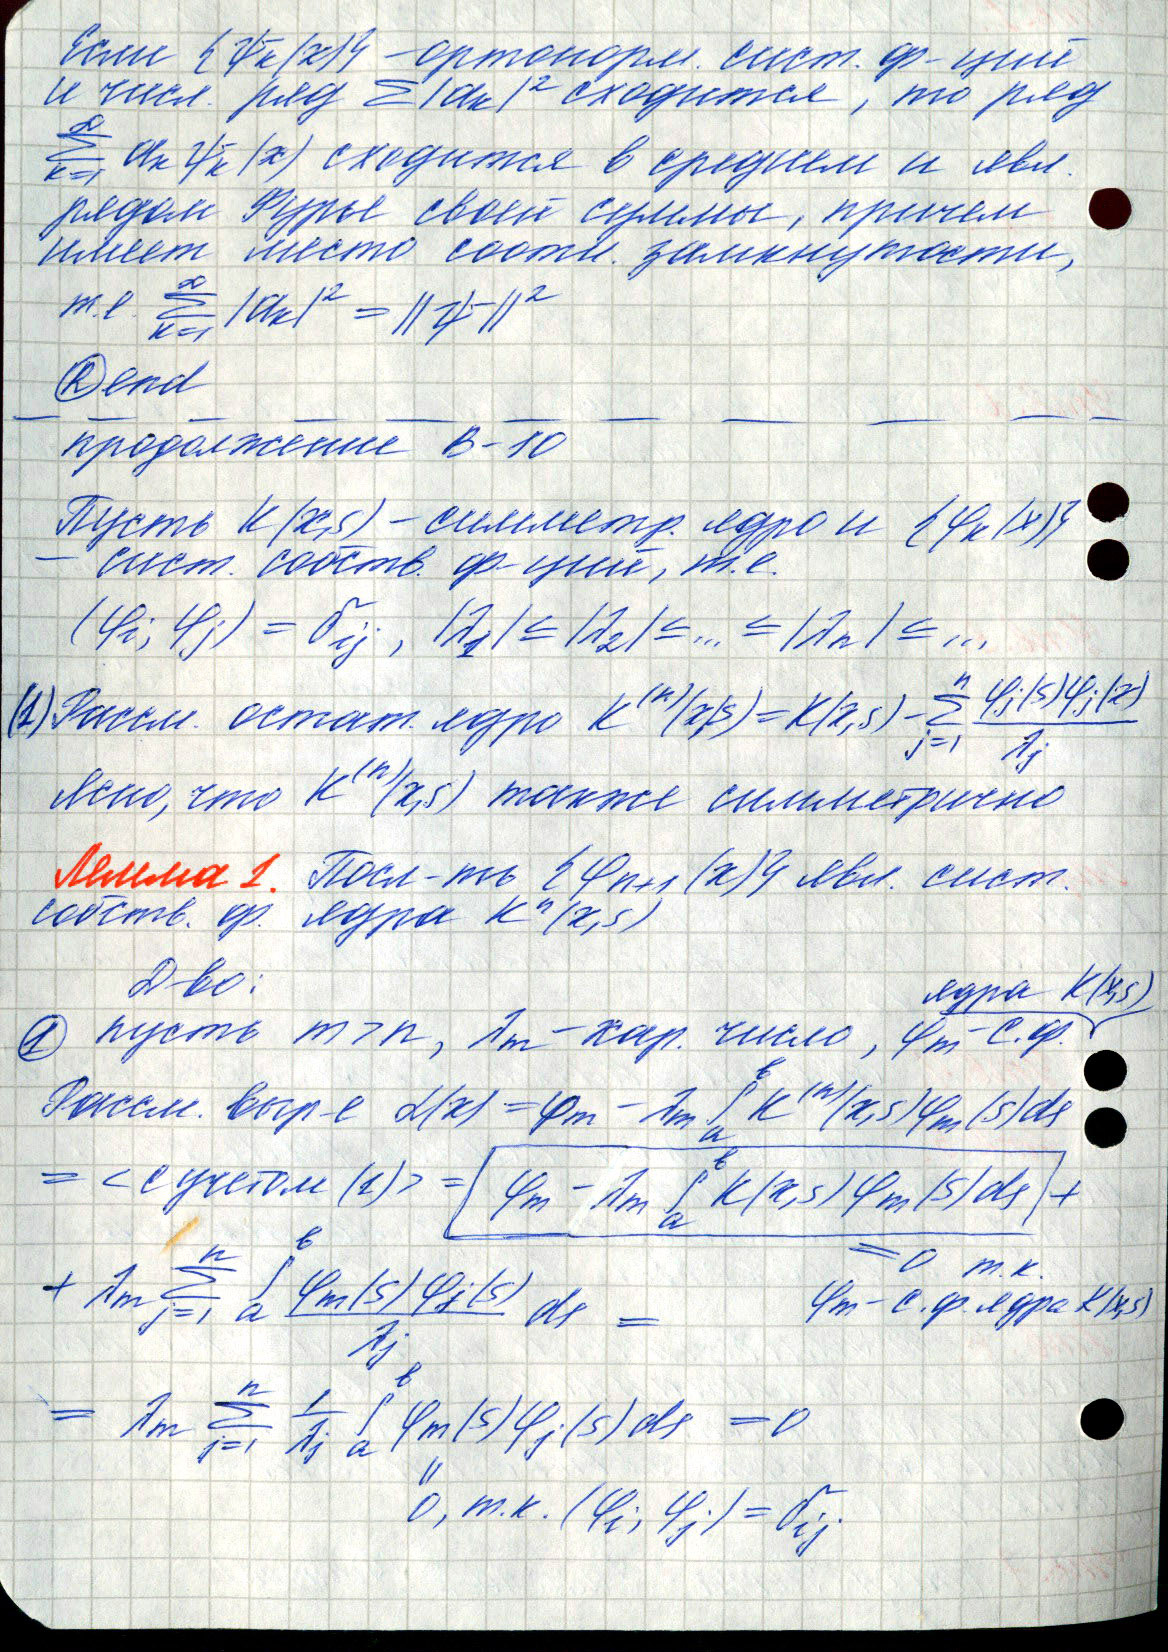 Если {ψₖ(x)} - ортонорм. сист. ф-ций
и числ. ряд Σ|aₖ|² сходится, то ряд
∑_{k=1}^{∞} aₖψₖ(x) сходится в среднем и явл.
рядом Фурье своей суммы, причем
имеет место соотн. замкнутости,
т.е. ∑_{k=1}^{∞} |aₖ|² = ||ψ||²
end
продолжение В-10
Пусть K(x,s) - симметр. ядро и {φₖ(x)}
- сист. собств. ф-ций, т.е.
(φᵢ, φⱼ) = δᵢⱼ, |λ₁| ≤ |λ₂| ≤ ... ≤ |λₙ| ≤ ...
(1) Рассм. остат. ядро K⁽ⁿ⁾(x,s) = K(x,s) - ∑_{j=1}^{n} φⱼ(s)φⱼ(x)/λⱼ
Ясно, что K⁽ⁿ⁾(x,s) также симметрично
Лемма 1. Посл-ть {φₙ₊₁(x)} явл. сист.
собств. ф. ядра Kⁿ(x,s)
Д-во:
ядра K(x,s)
① пусть m > n, λₘ - хар. число, φₘ - с.ф.
Рассм. выр-е α(x) = φₘ - λₘ ∫ₐᵇ K⁽ⁿ⁾(x,s)φₘ(s)ds
= <с учетом (1)> = [φₘ - λₘ ∫ₐᵇ K(x,s)φₘ(s)ds] +
= 0 т.к.
φₘ - с.ф. ядра K(x,s)
+ λₘ ∑_{j=1}^{n} ∫ₐᵇ φₘ(s)φⱼ(s)/λⱼ ds =
= λₘ ∑_{j=1}^{n} 1/λⱼ ∫ₐᵇ φₘ(s)φⱼ(s)ds = 0
"
0, т.к. (φᵢ, φⱼ) = δᵢⱼ